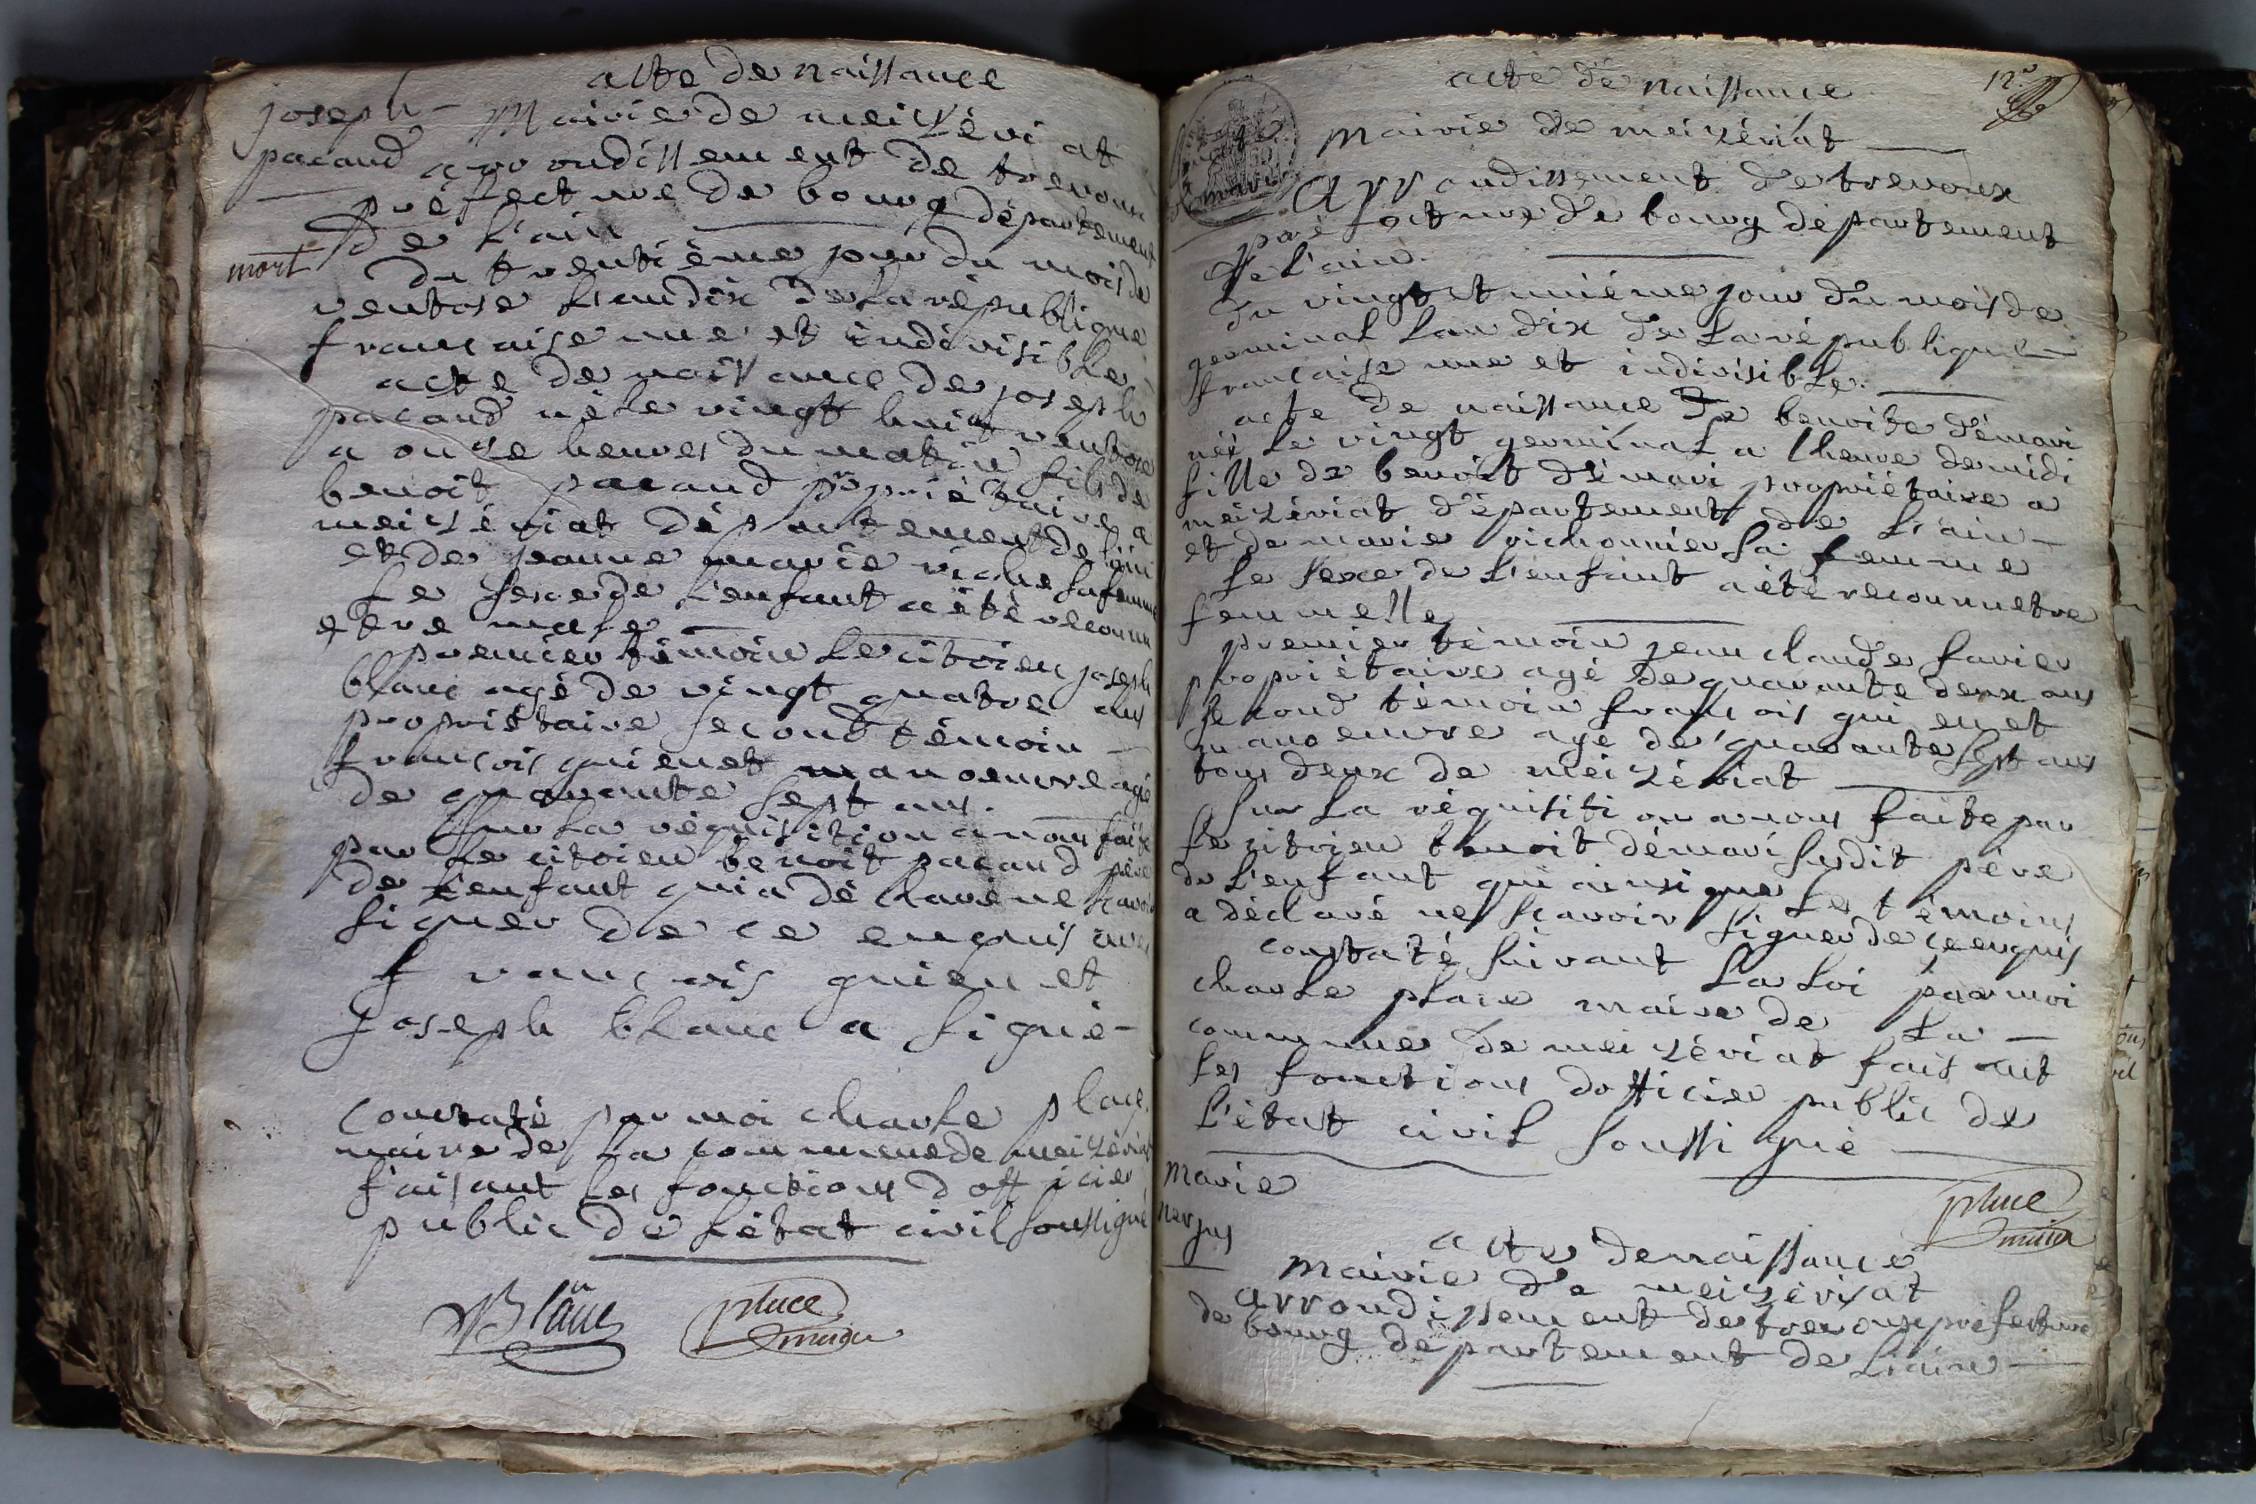 acte de naissance
joseph
pacaud
Mairie de meizériat
arrondissement de trevoux
préfecture de bourg département
de l'ain
mort
du trentième jour du mois de
ventose l'an dix de la république
française une et indivisible
acte de naissance de joseph
pacaud né le vingt huit ventose
a onze heures du matin fils de
benoit pacaud propriétaire a
meizériat département de l'ain
et de jeanne marie viche sa femme
Le sexe de l'enfant a été reconnu
etre male
premier témoin Le citoien joseph
blanc agé de vingt quatre ans
propriétaire second témoin
françois guienet manoeuvre agé
de quarante sept ans.
Sur La réquisition a nous faite
par Le citoien benoit pacaud père
de L'enfant qui a déclaré ne scavoir
signer de ce enquis avec
françois guienet
joseph blanc a signé
constaté par moi charle place
maire de La commune de meizériat
faisant Les fonctions d officier
public de L'état civil soussigné
Blanc
place
maire
acte de naissance
12e
Mairie de meizériat
Arrondissement de trevoux
préfecture de bourg département
de l'ain.
du vingt et unième jour du mois de
germinal L'an dix de La république
française une et indivisible.
acte de naissance de benoite démari
née Le vingt germinal a lheure de midi
fille de benoit démari propriétaire a
meizériat département de L'ain
et de marie vichonnier sa femme
Le sexe de L'enfant a été reconnu etre
femmelle
premier témoin jean claude favier
propriétaire agé de quarante deux ans
second témoin françois guienet
manoeuvre agé de quarante sept ans
tous deux de meizériat
Sur La réquisition a nous faite par
Le citoien benoit démari susdit père
de L'enfant qui ainsi que Les témoins
a déclaré ne scavoir signer de ce enquis
constaté suivant La Loi par moi
charle place maire de La
commune de meizériat faisant
Les fonctions dofficier public de
L'état civil soussigné
place
maire
marie
nerjus
acte de naissance
mairie de meizériat
arrondissement de trevoux préfecture
de bourg département de L'ain